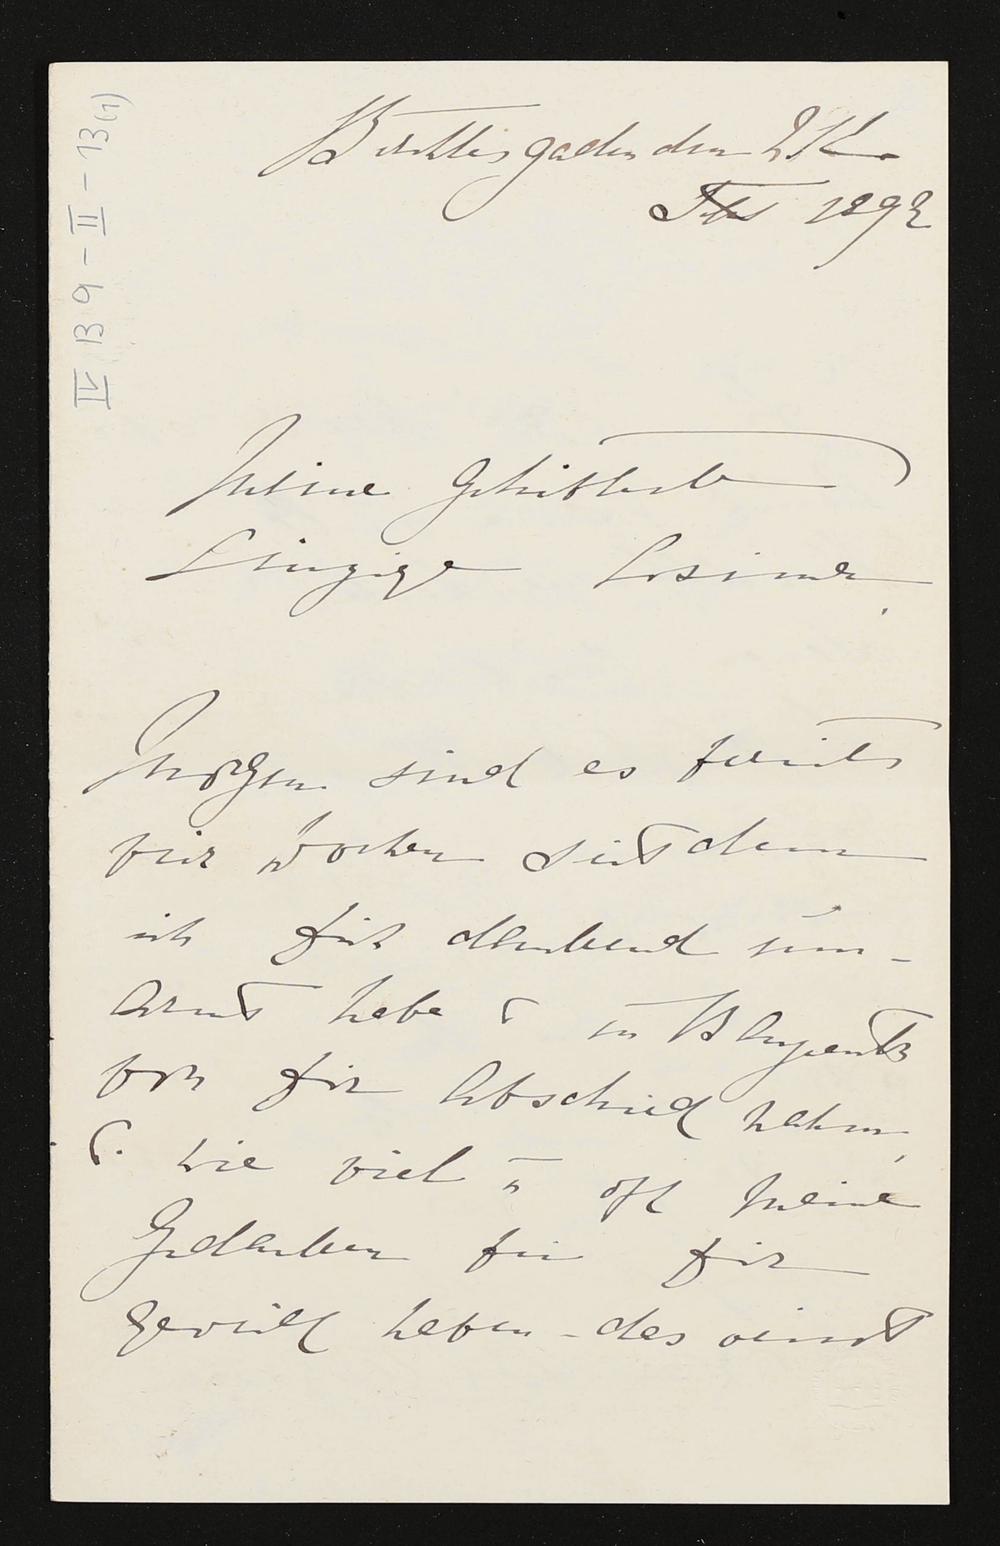 IV B 9 - II - 13 (1)
Berchtesgaden den
1892
Meine Geliebteste
Einzige Cosima
Morgen sind es bereits
vier Wochen seitdem
ich Dich dankend um-
armt habe & in Bayreuth
von Dir Abschied nahm,
&. wie viel u oft meine
Gedanken bei Dir
geweilt haben - das weisst